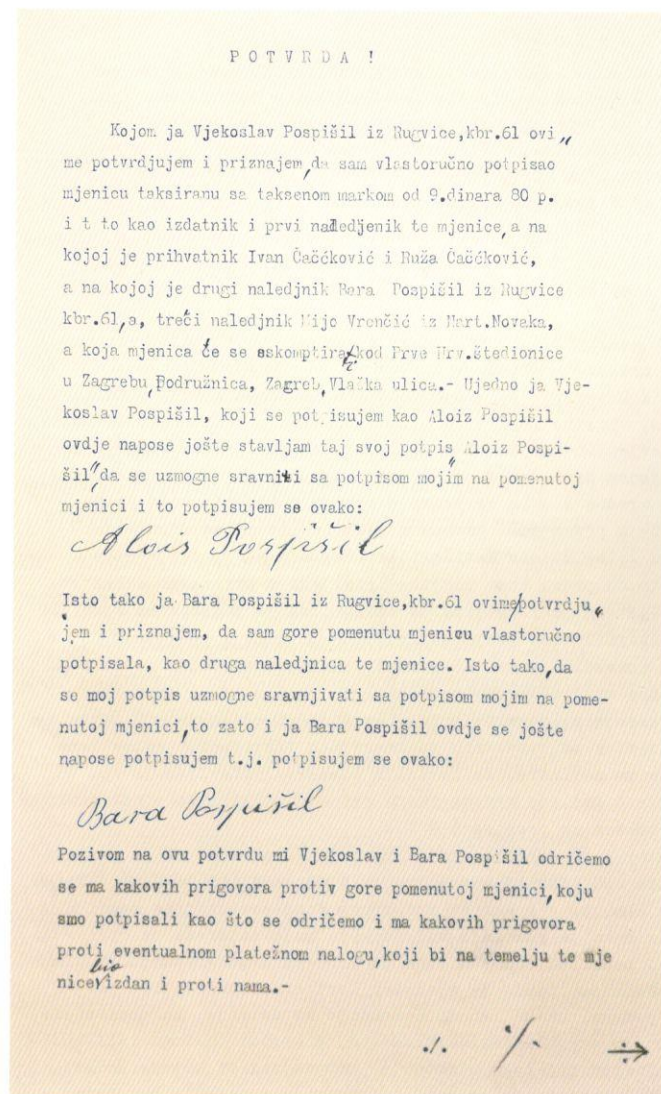 P O T V R D A !
Kojom ja Vjekoslav Pospišil iz Rugvice,kbr.61 ovi„
me potvrdjujem i priznajem,da sam vlastoručno potpisao
mjenicu taksiranu sa taksenom markom od 9.dinara 80 p.
i t to kao izdatnik i prvi naledjenik te mjenice,a na
kojoj je prihvatnik Ivan Čaććković i Ruža Čaććković,
a na kojoj je drugi naledjnik Bara Pospišil iz Rugvice
kbr.61,a, treći naledjnik Mijo Vrenčić iz Hart.Novaka,
a koja mjenica će se eskomptirati kod Prve Hrv.štedionice
u Zagrebu,Podružnica, Zagreb,Vlaška ulica.- Ujedno ja Vje-
koslav Pospišil, koji se potpisujem kao Aloiz Pospišil
ovdje napose jošte stavljam taj svoj potpis Aloiz Pospi-
šil",da se uzmogne sravniti sa potpisom mojim" na pomenutoj
mjenici i to potpisujem se ovako:
Alois Pospišil
Isto tako ja Bara Pospišil iz Rugvice,kbr.61 ovime/potvrdju„
jem i priznajem, da sam gore pomenutu mjenicu vlastoručno
potpisala, kao druga naledjnica te mjenice. Isto tako,da
se moj potpis uzmogne sravnjivati sa potpisom mojim na pome-
nutoj mjenici,to zato i ja Bara Pospišil ovdje se jošte
napose potpisujem t.j. potpisujem se ovako:
Bara Pospišil
Pozivom na ovu potvrdu mi Vjekoslav i Bara Pospišil odričemo
se ma kakovih prigovora protiv gore pomenutoj mjenici,koju
smo potpisali kao što se odričemo i ma kakovih prigovora
proti eventualnom platežnom nalogu,koji bi na temelju te mje
nice bio izdan i proti nama.-
./. ./. →